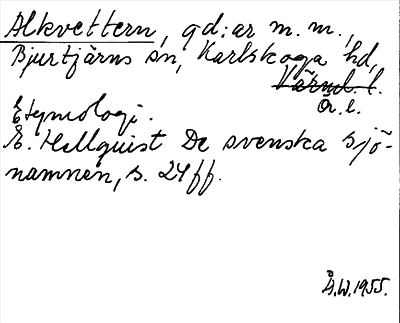 Alkvettern, gd:ar m.m.,
Bjurtjärns sn, Karlskoga hd,
Värml. l.
Ö. l.
Etymologi.
E. Hellquist De svenska sjö-
namnen, s. 24 ff.
Å.W. 1955.